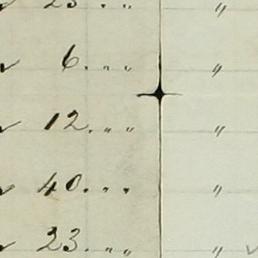 23 . „ „
6 . „ „ „
12 . „ „ „
40 . „ „ „
23 . „ „ „